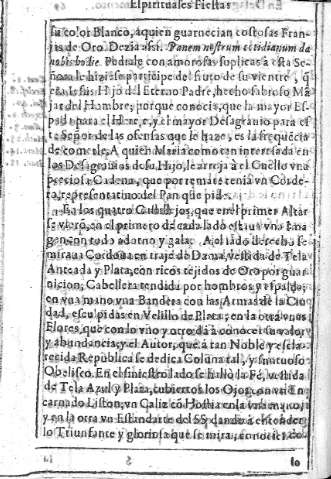 Espirituales Fiestas
su color Blanco, à quien guarnecian costosas Fran-
jas de Oro. Dezia assi. Panem nostrum cotidianum da
nobis hodie. Pidiale con amorosas suplicas à esta Se-
ñora le hiziesse participe del fruto de su vientre, q
esta Iesus Hijo del Eterno Padre, hecho sabroso Mã
jar del Hombre; porque conocia, que la mayor Es-
pada para el Herege, y el mayor Desagravio para es
te Señor de las ofensas que le haze, es la frequẽcia
de comerle. A quien Maria como tan interesada en
los Desagravios de su Hijo, le arroja à el Cuello vna
preciosa Cadena, que por remate tenia vn Corde-
ro, representativo del Pan que pide.
En los quatro Cubillejos, que en el primer Altar
se viero, en el primero de cada lado estava vna Ima
gen en todo adorno y gala. A el lado derecho se
mirava Cordova en traje de Dama, vestida de Tela
Anteada y Plata, con ricos tejidos de Oro por guar
nicion, Cabellera tendida por hombros y espalda;
en vna mano vna Bandera con las Armas de la Ciu
dad, esculpidas en Velillo de Plata; en la otra vnas
Flores, que con lo vno y otro dà à conocer su valor
y abundancia; y el Autor, que à tan Noble y escla-
recida Republica se dedica Coluna tal, y suntuoso
Obelisco. En el siniestro lado se hallò la Fè, vestida
de Tela Azul y Plata, cubiertos los Ojos con vn En
carnado Liston, vn Caliz cõ Hostia en la vna mano,
y en la otra vn Estandarte del SS. dando à entender
lo Triunfante y gloriosa que se mira, conociendo
lo